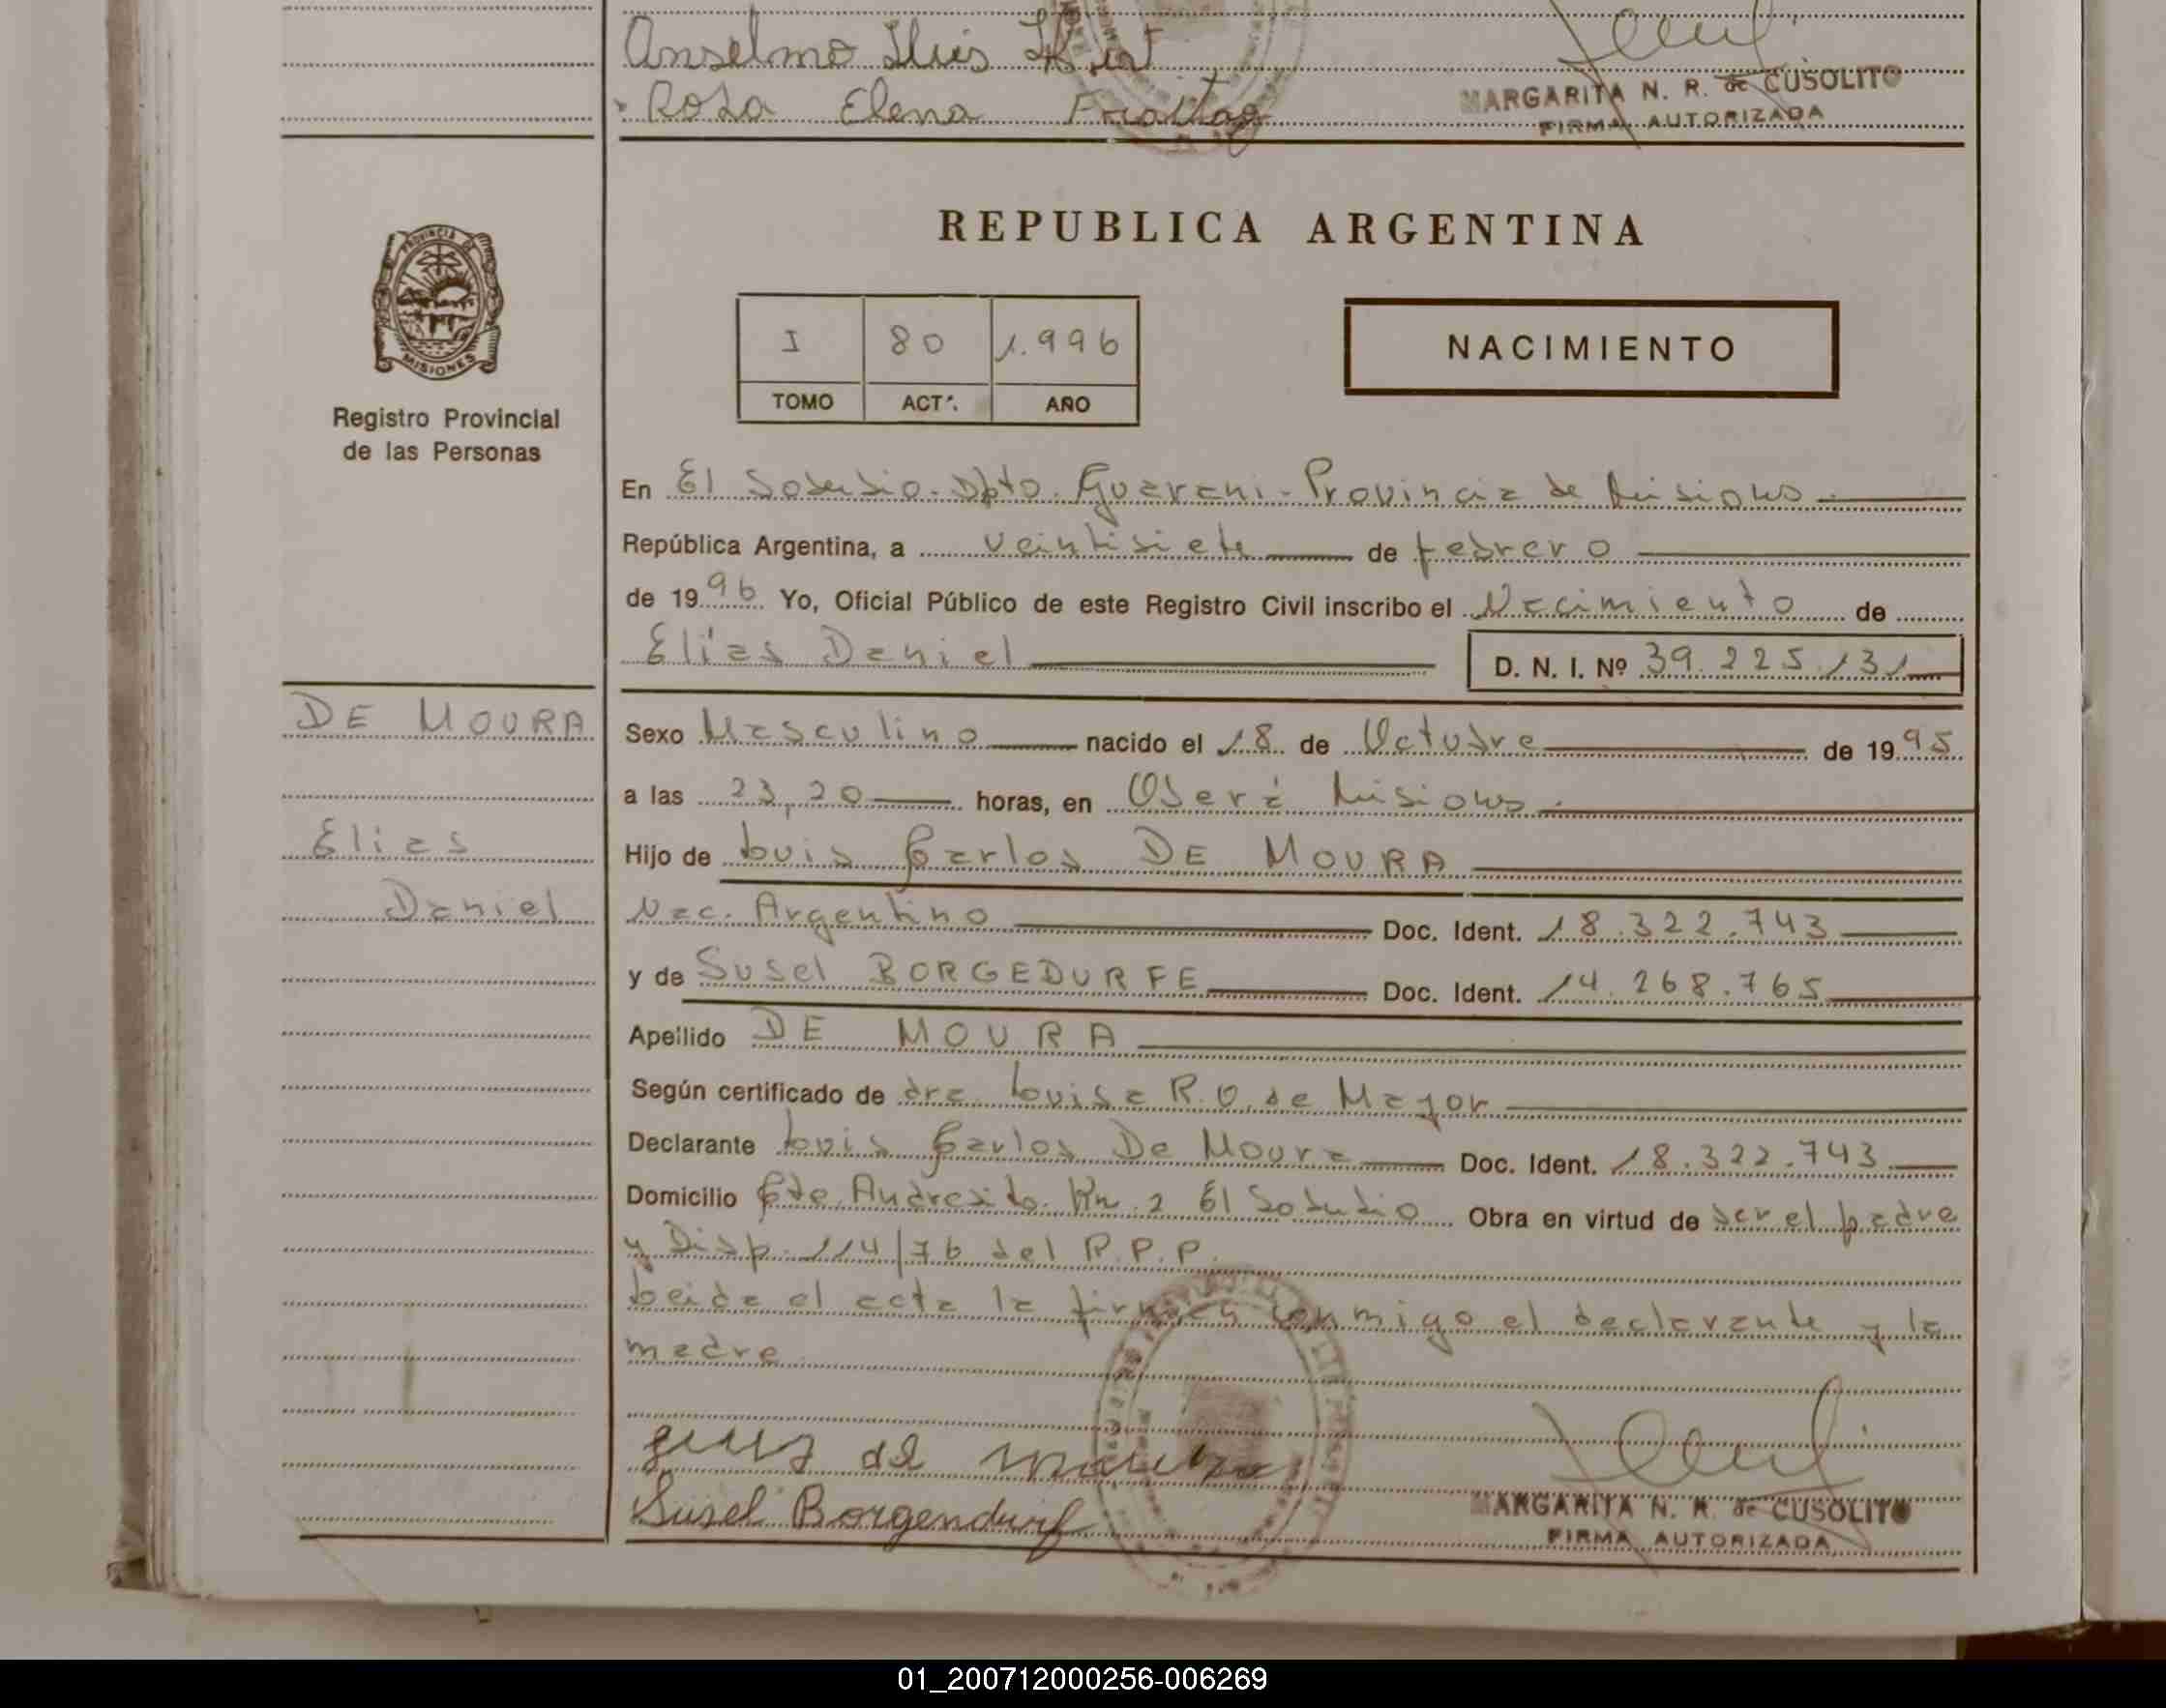 Anselmo Luis
Rosa Elena Freitag
MARGARITA N. R. de CUSOLITO
FIRMA AUTORIZADA
PROVINCIA DE
MISIONES
Registro Provincial
de las Personas
REPUBLICA ARGENTINA
I 80 1.996
TOMO ACTª. AÑO
NACIMIENTO
En El Soberbio. Dpto. Guarani - Provincia de Misiones.
República Argentina, a veintisiete de febrero
de 1996 Yo, Oficial Público de este Registro Civil inscribo el Nacimiento de
Elías Daniel D. N. I. Nº 39.225.131
DE MOURA
Elias
Daniel
Sexo Masculino nacido el 18 de Octubre de 1995
a las 23,20 horas, en Oberá Misiones.
Hijo de Luis Carlos DE MOURA
Nac. Argentino Doc. Ident. 18.322.743
y de Susel BORGEDURFE Doc. Ident. 14.268.765
Apellido DE MOURA
Según certificado de dra. Luisa R. O. de Mayor
Declarante Luis Carlos De Moura Doc. Ident. 18.322.743
Domicilio Cte. Andresito. Km. 2 El Soberbio Obra en virtud de ser el padre
y Disp. 114/76 del R.P.P.
Leida el acta la firman conmigo el declarante y la
madre
de
Susel Borgendurf
MARGARITA N. R. de CUSOLITO
FIRMA AUTORIZADA
01_200712000256-006269